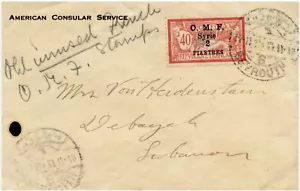 AMERICAN CONSULAR SERVICE
Old unused French
Stamps
O.M.F.
O. M. F.
Syrie
2
PIASTRES
40
Mrs Von Heidenstam
Debayeh
Lebanon
BEYROUTH